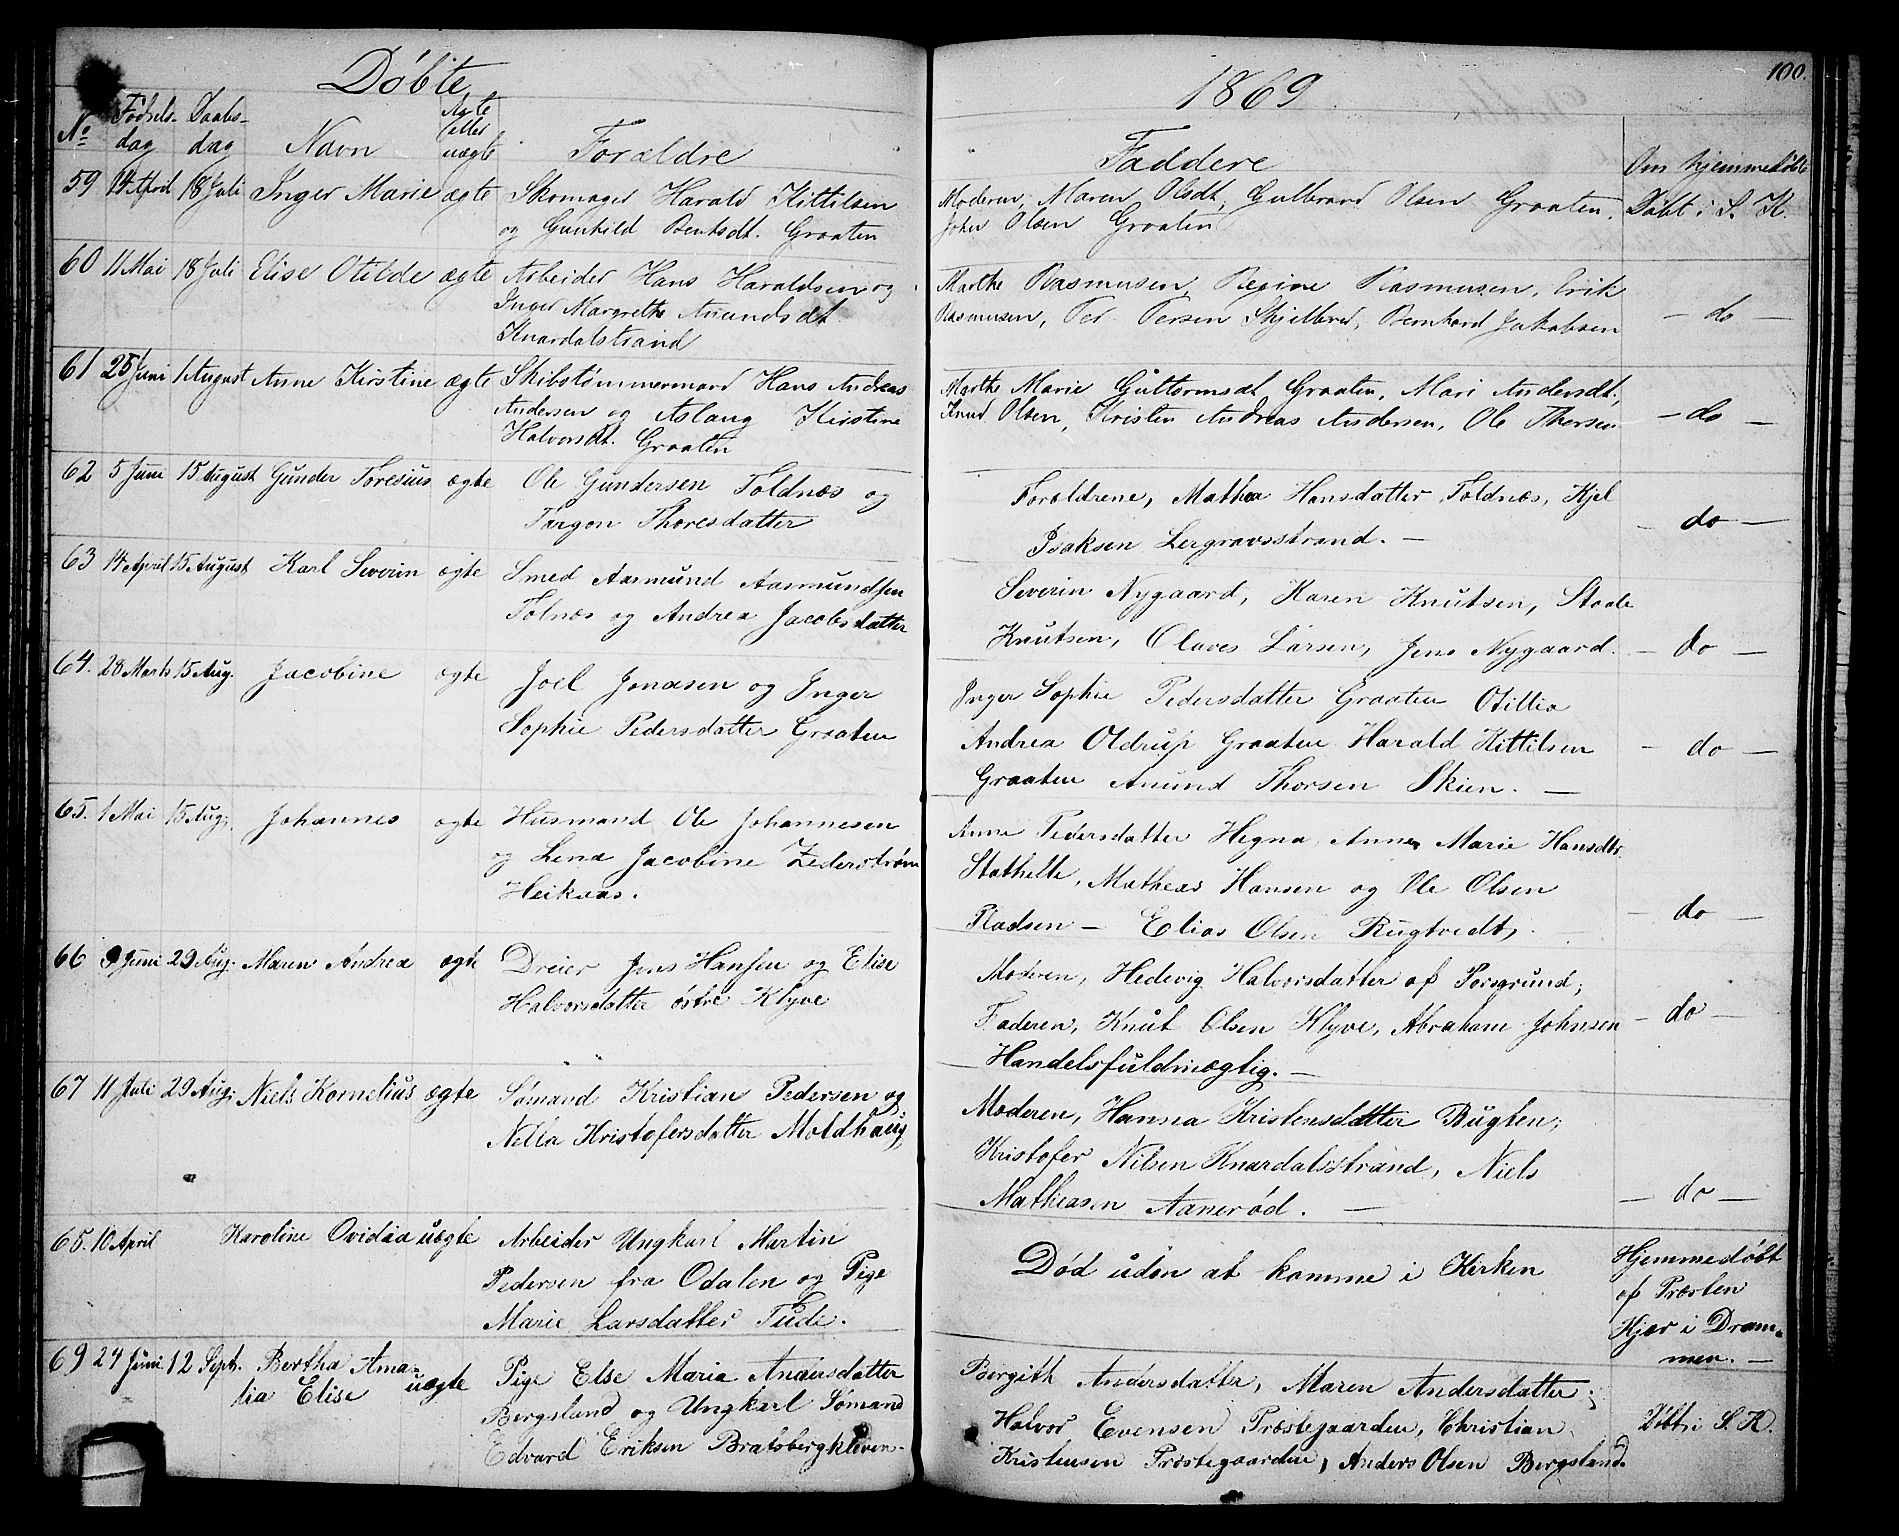 Døbte
1869
100.
No Fødselsdag Daabsdag Navn Ægte eller uægte Forældre Faddere Om hjemmedøbt
59 14 April 18 Juli Inger Marie ægte Skomager Harald Kittilsen
og Gunhild Bentsdt. Graaten
Moderen, Maren Olsdt, Gulbrand Olsen Graaten,
John Olsen Graaten
Døbt i S. K.
60 11 Mai 18 Juli Elise Otilde ægte Arbeider Hans Haraldsen og
Inger Margrethe Anundsdt.
Knardalstrand
Marthe Rasmusen, Regine Rasmusen, Erik
Rasmusen, Per Persen Skjelbred, Bernhard Jakobsen
- do -
61 25 Juni 1 August Anne Kirstine ægte Skibstømmermand Hans Andreas
Andersen og Aslaug Kirstine
Halvorsdt. Graaten
Marthe Marie Guttormsdt Graaten, Mari Andersdt.,
Knud Olsen, Kristen Andreas Andersen, Ole Thorsen
- do -
62 5 Juni 15 August Gunder Toresius ægte Ole Gundersen Toldnæs og
Torgon Thoresdatter
Forældrene, Mathea Hansdatter Toldnæs, Kjel
Isaksen Lergravsstrand. -
- do -
63 14 April 15 August Karl Severin ægte Smed Aasmund Aasmundsen
Tolnæs og Andrea Jacobsdatter
Severin Nygaard, Karen Knutsen, Staale
Knutsen, Olaves Larsen, Jens Nygaard.
- do -
64. 28 Marts 15 Aug. Jacobine ægte Joel Jonasen og Inger
Sophie Pedersdatter Graaten
Inger Sophie Pedersdatter Graaten Otillia
Andrea Oldrup Graaten Harald Kittilsen
Graaten Anund Thorsen Skien. -
- do -
65. 1 Mai 15 Aug. Johannes ægte Husmand Ole Johannesen
og Lena Jacobine Zederstrøm
Heikaas.
Anne Pedersdatter Hegna, Anne Marie Hansdtr.
Stathelle, Matheas Hansen og Ole Olsen
Pladsen - Elias Olsen Rugtvedt,
- do -
66 9 Juni 29 Aug. Maren Andrea ægte Dreier Jens Hansen og Elise
Halvorsdatter østre Klyve
Moderen, Hedevig Halvorsdatter af Porsgrund;
Faderen, Knut Olsen Klyve, Abraham Johnsen
Handelsfuldmægtig. -
- do -
67 11 Juli 29 Aug. Niels Kornelius ægte Sømand Kristian Pedersen og
Nella Kristofersdatter Moldhaug
Moderen, Hanna Kristensdatter Bugten;
Kristofer Nilsen Knardalsstrand, Niels
Matheasen Aanerød. -
- do -
65. 10 April Karoline Ovidia uægte Arbeider Ungkarl Martin
Pedersen fra Odalen og Pige
Marie Larsdatter Tude.
Død uden at komme i Kirken
Hjemmedøbt
af Præsten
Hjær i Dram-
men. -
69 24 Juni 12 Sept. Bertha Ama-
lia Elise uægte Pige Else Maria Andersdatter
Bergsland og Ungkarl Sømand
Edvard Eriksen Bratsbergkleven.
Bergith Andersdatter, Maren Andersdatter;
Halvor Evensen Præstegaarden, Christian
Kristensen Præstegaarden, Anders Olsen Bergsland.
Døbt i S. K.